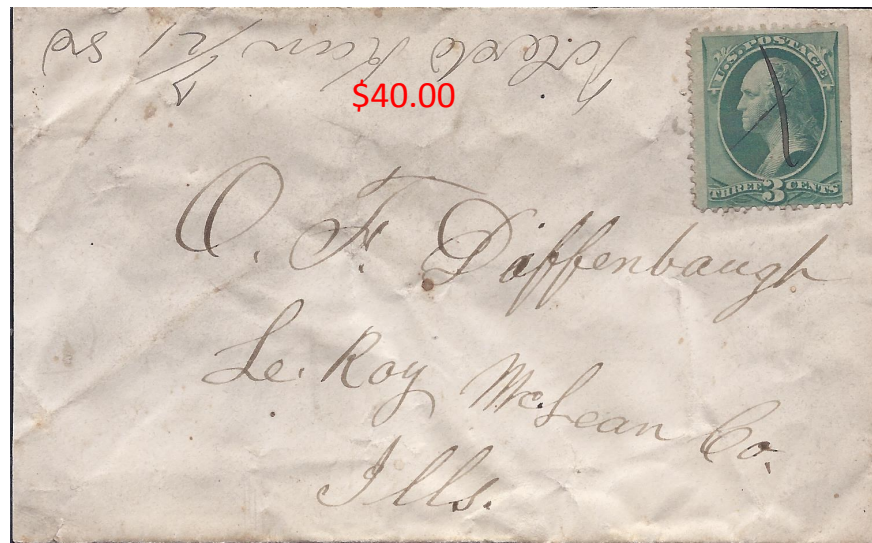 Toledo Kan
$40.00
U.S. POSTAGE
THREE 3 CENTS
O. F. Diffenbaugh
Le. Roy McLean Co.
Ills.